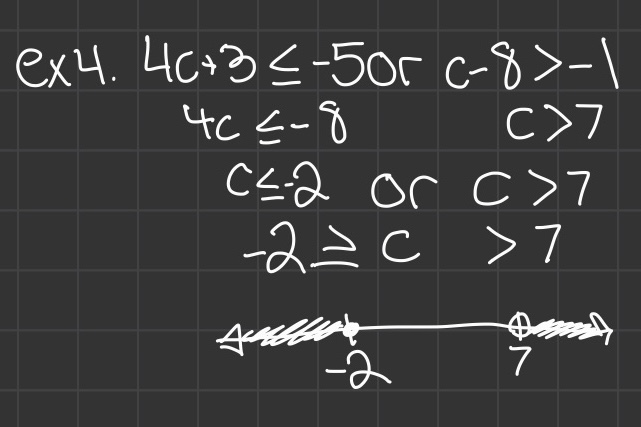 ex4. 4c+3 ≤ -5 or c-8 > -1
4c ≤ -8 c > 7
c ≤ -2 or c > 7
-2 ≥ c > 7
-2 7